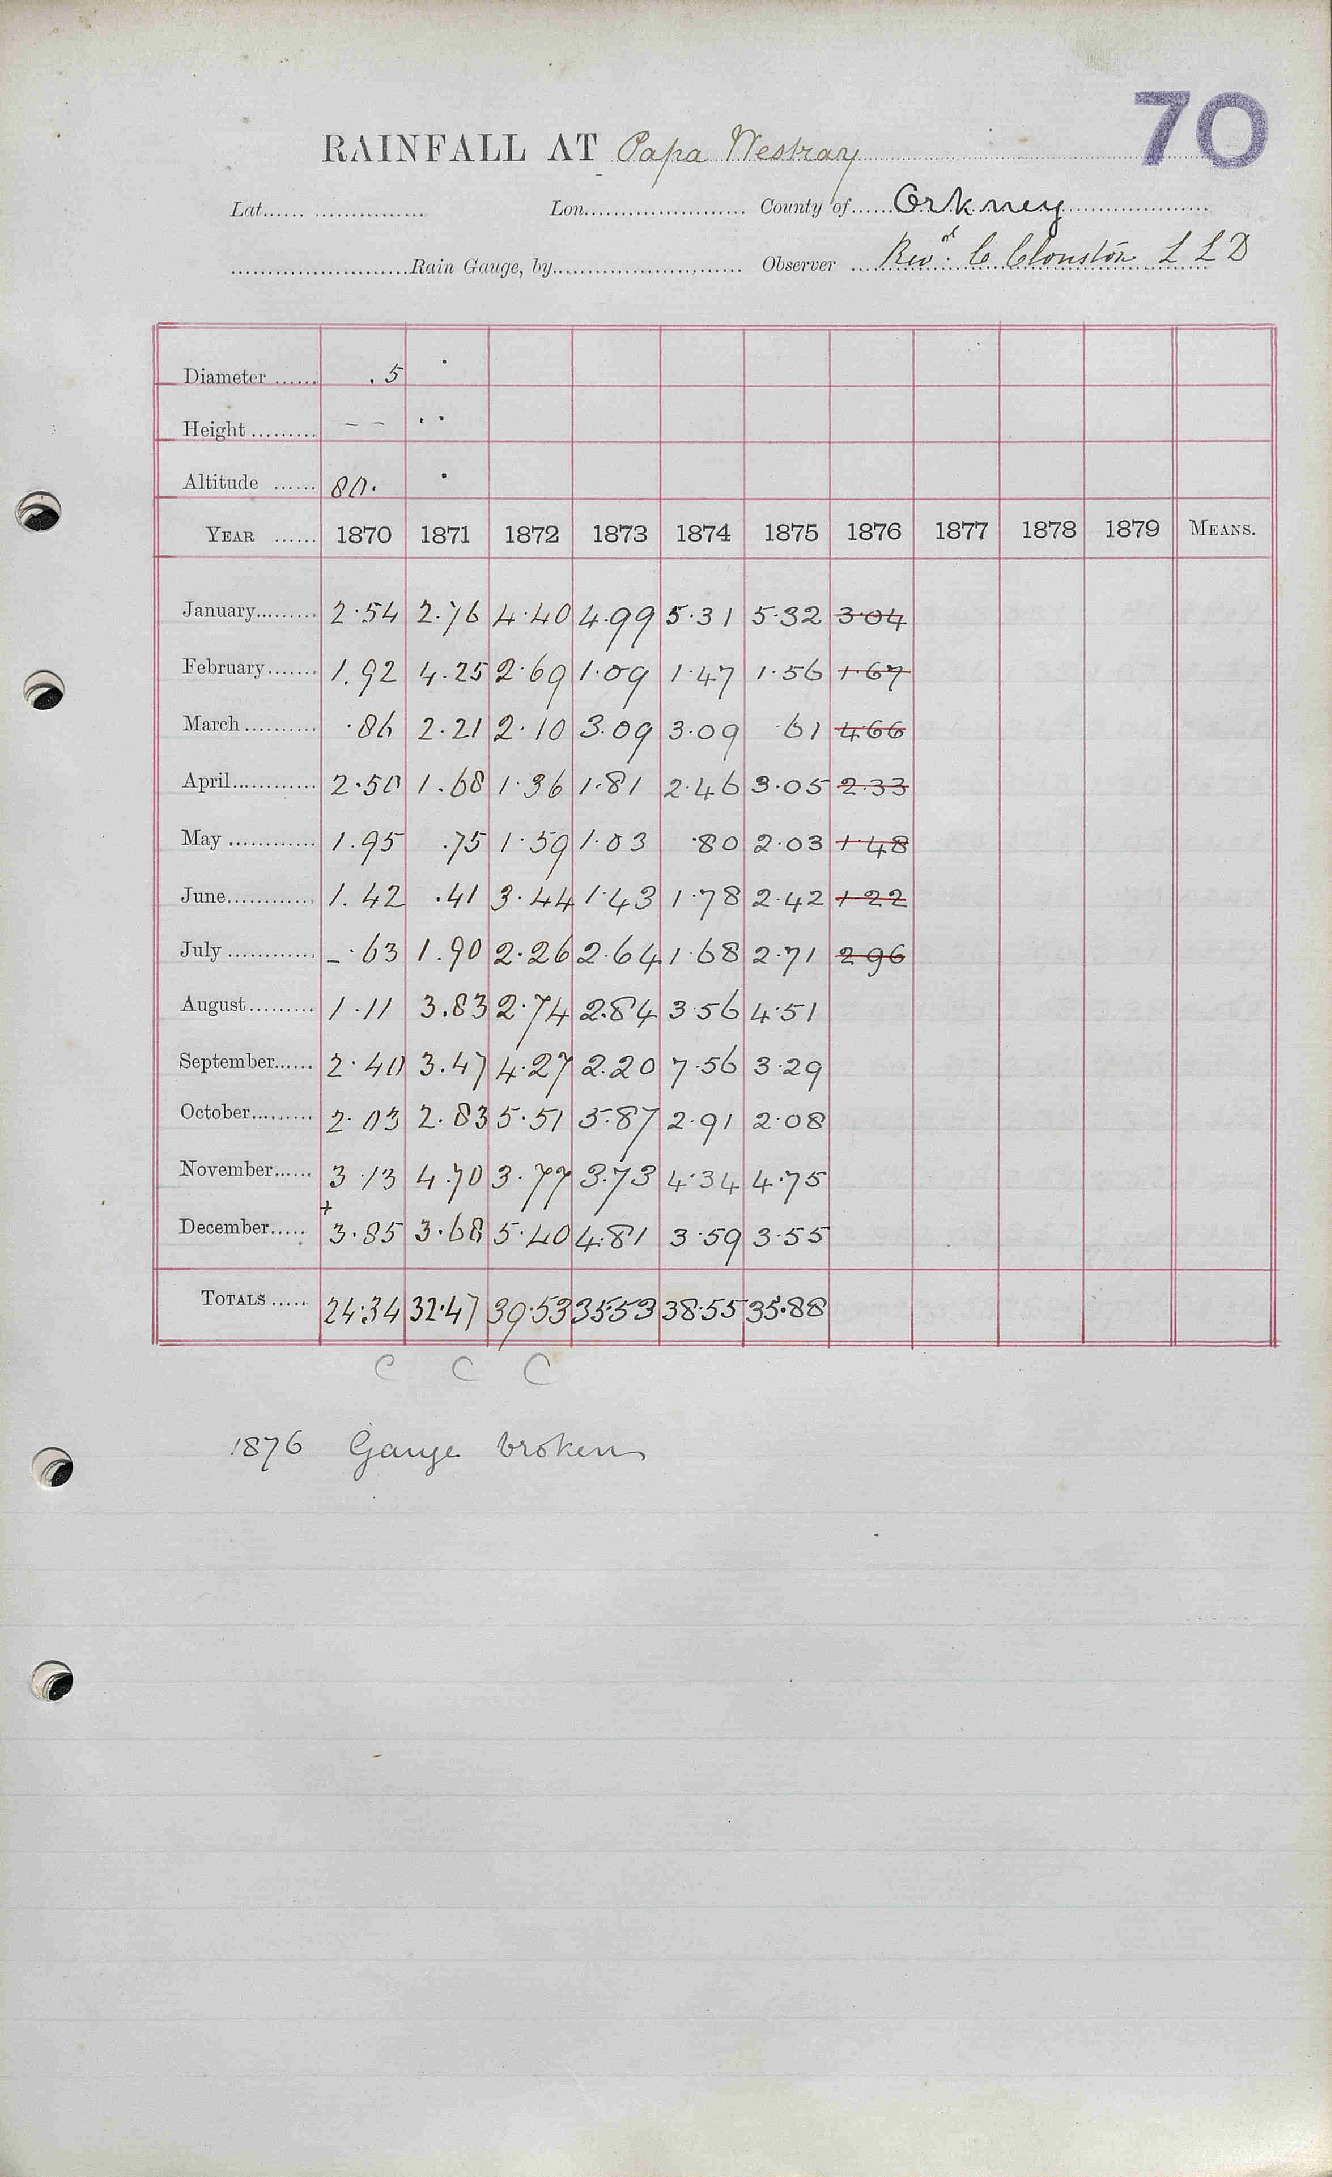 70
RAINFALL AT Papa Westray
Lat. Lon. County of Orkney
Rain Gauge, by Observer Revd. C Clouston L L D
Diameter .5
Height – –
Altitude 80.
YEAR 1870 1871 1872 1873 1874 1875 1876 1877 1878 1879 MEANS.
January 2.54 2.76 4.40 4.99 5.31 5.32 3.04
February 1.92 4.25 2.69 1.09 1.47 1.56 1.67
March .86 2.21 2.10 3.09 3.09 .61 4.66
April 2.50 1.68 1.36 1.81 2.46 3.05 2.33
May 1.95 .75 1.59 1.03 .80 2.03 1.48
June 1.42 .41 3.44 1.43 1.78 2.42 1.22
July – .63 1.90 2.26 2.64 1.68 2.71 2.96
August 1.11 3.83 2.74 2.84 3.56 4.51
September 2.40 3.47 4.27 2.20 7.56 3.29
October 2.03 2.83 5.51 5.87 2.91 2.08
November 3.13 4.70 3.77 3.73 4.34 4.75
December +3.85 3.68 5.40 4.81 3.59 3.55
TOTALS 24.34 32.47 39.53 35.53 38.55 35.88
C C C
1876 Gauge broken